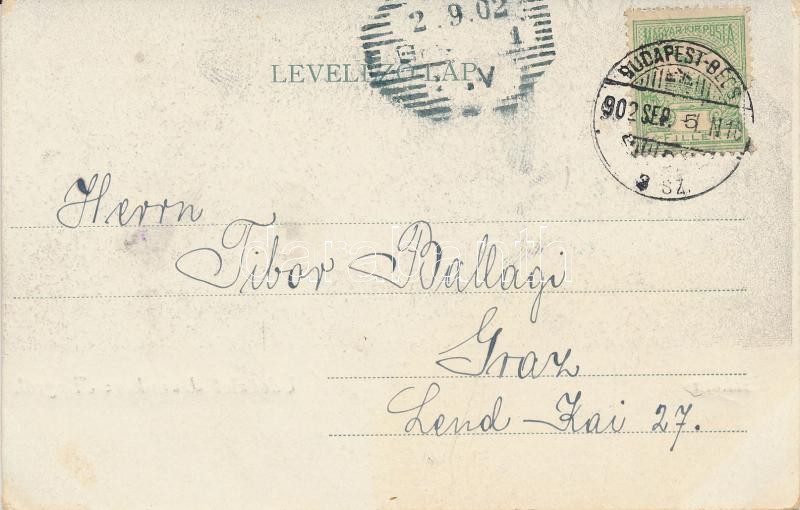 2 9.02
1
V
LEVELEZŐ-LAP
MAGYAR·KIR·POSTA
BUDAPEST-BÉCS
902 SEP 5 N
FILLÉR
SZ.
Herrn
Tibor Ballagi
darabanth
Graz
Lend-Kai 27.